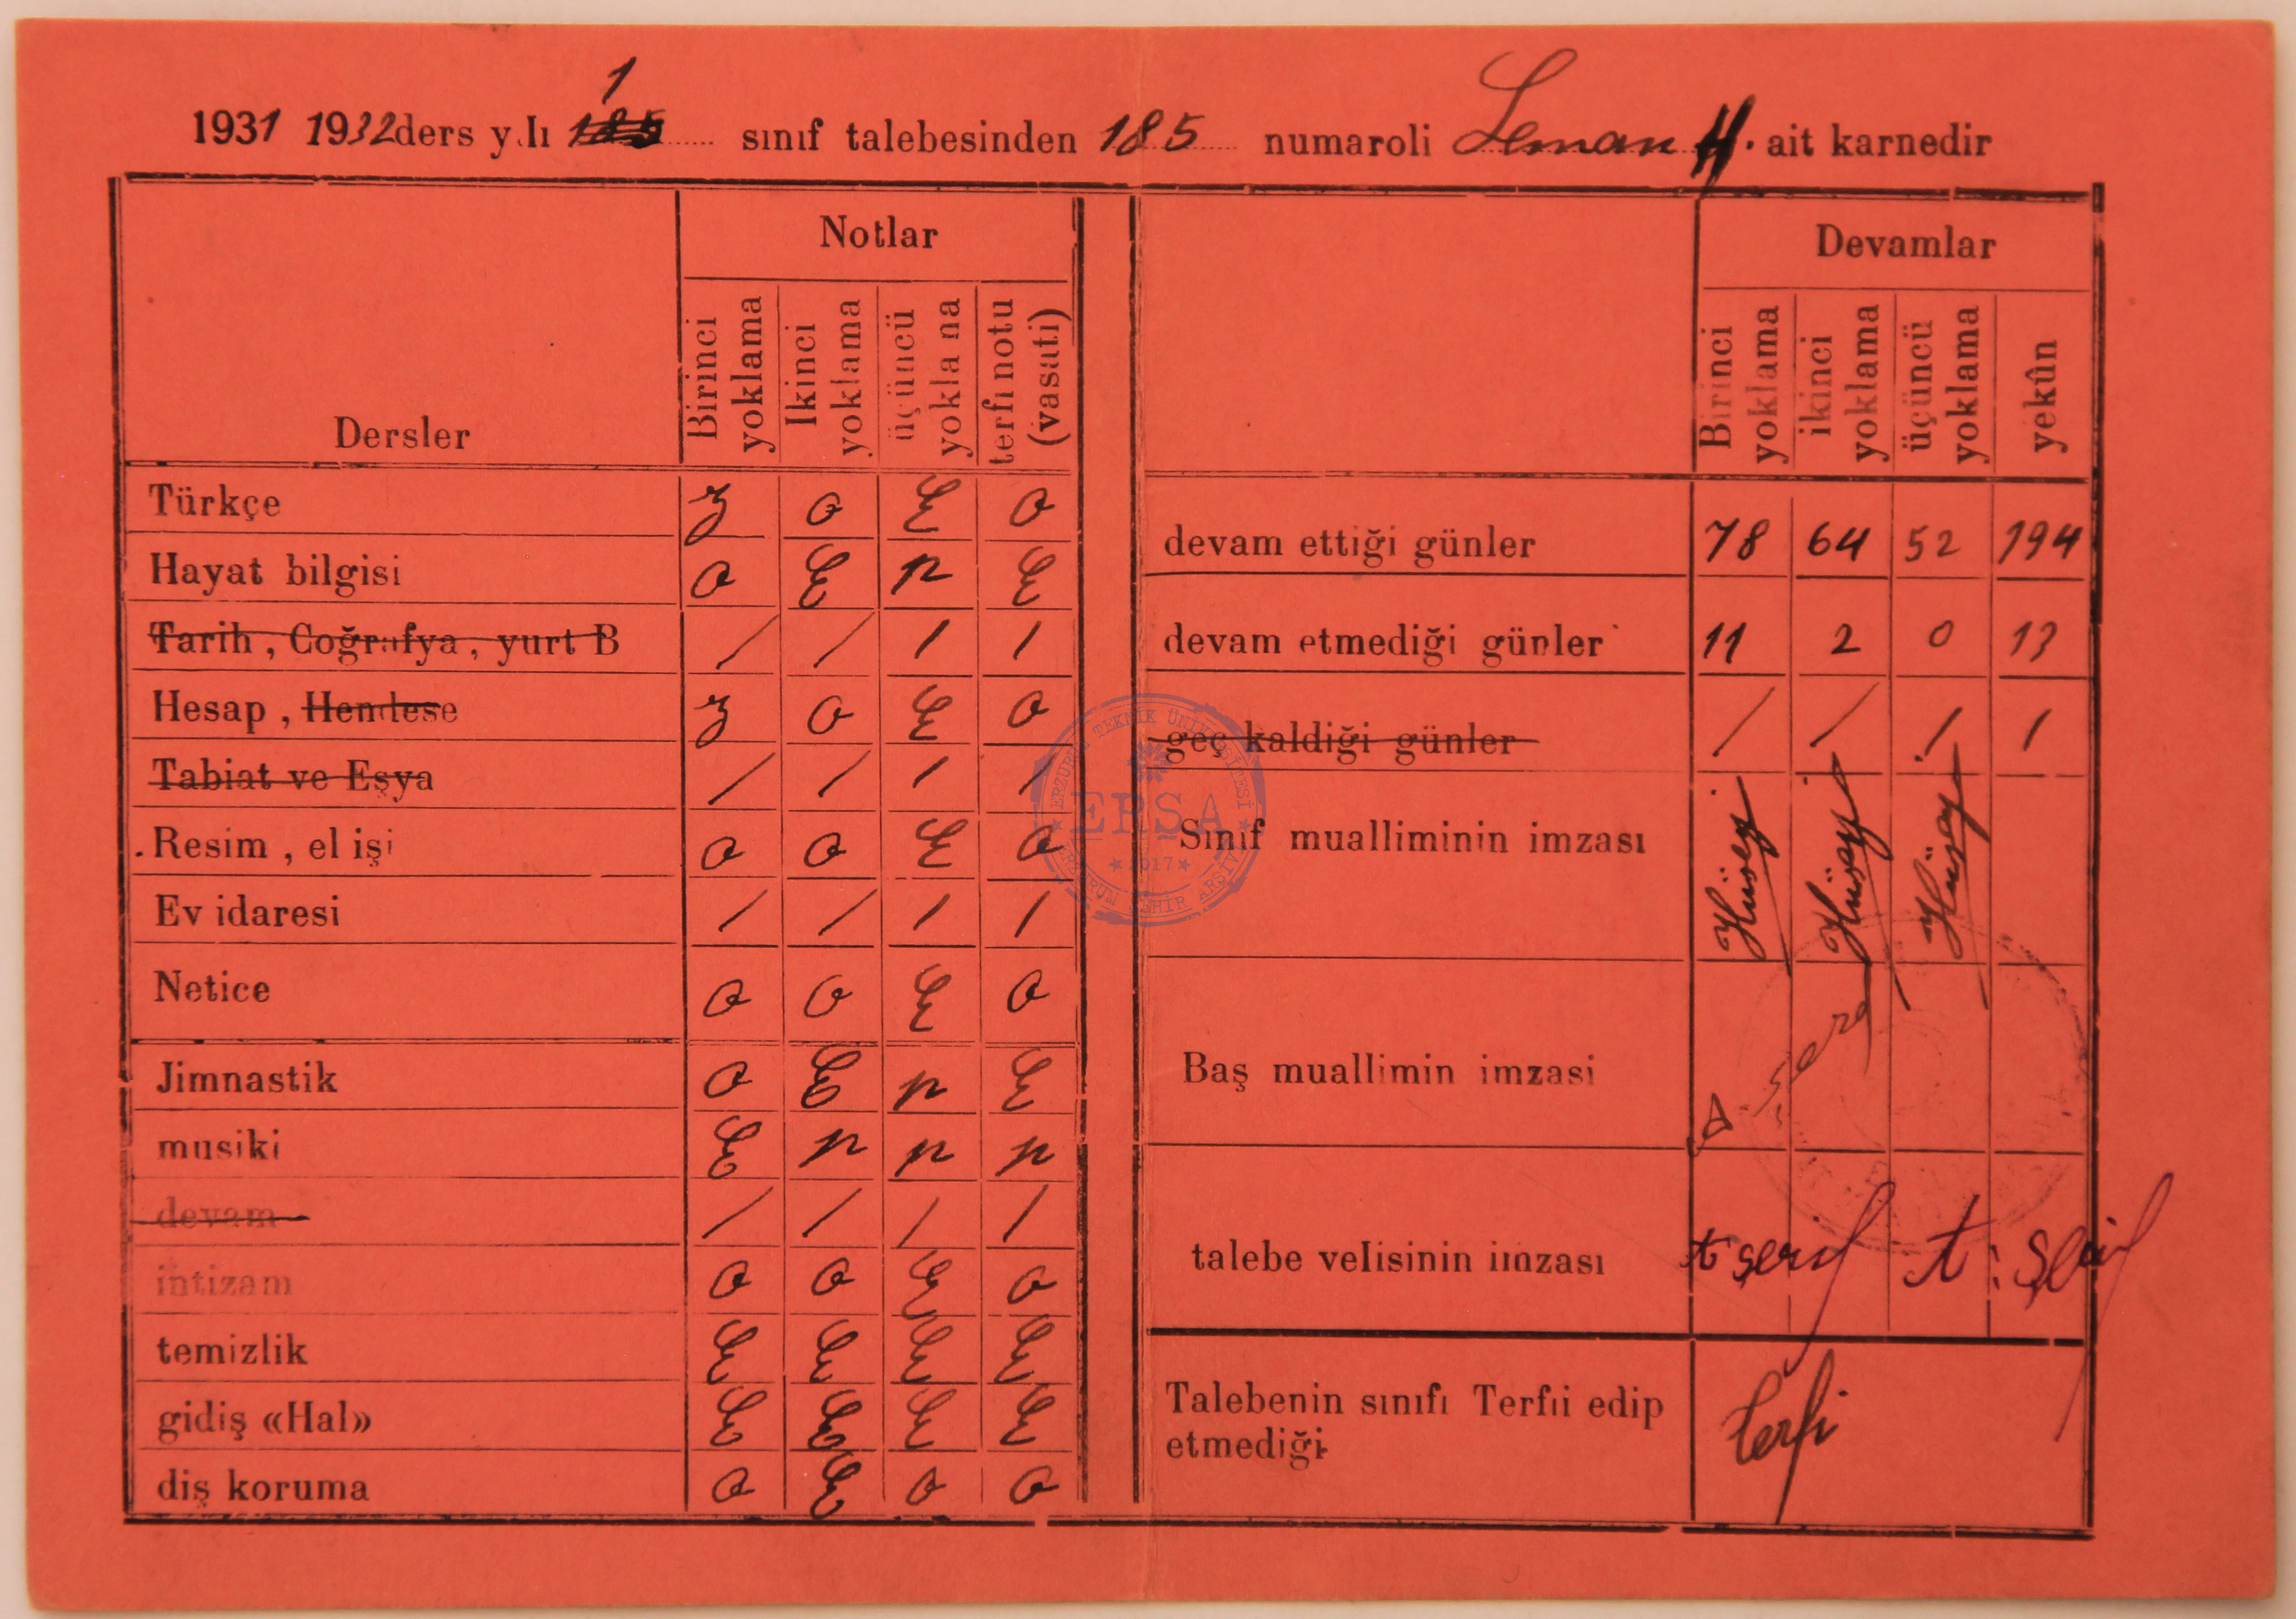 1931 1932 ders yılı 1 sınıf talebesinden 185 numaroli Leman H. ait karnedir
Dersler
Notlar
Birinci yoklama
Ikinci yoklama
üçüncü yokla na
terfi notu (vasati)
Türkçe z o E o
Hayat bilgisi o E p E
Tarih, Coğrafya, yurt B / / / /
Hesap, Hendese z o E o
Tabiat ve Eşya / / / /
Resim, el işi o o E o
Ev idaresi / / / /
Netice o o E o
Jimnastik o E p E
musiki E p p p
devam / / / /
intizam o o E o
temizlik E E E E
gidiş «Hal» E E E E
diş koruma o E o o
Devamlar
Birinci yoklama
ikinci yoklama
üçüncü yoklama
yekûn
devam ettiği günler 78 64 52 194
devam etmediği günler 11 2 0 13
geç kaldiği günler / / / /
Sınıf mualliminin imzası
Baş muallimin imzasi
talebe velisinin imzası
Talebenin sınıfı Terfii edip
etmediği
terfi
ERZURUM TEKNİK ÜNİVERSİTESİ
ERŞA
2017
ERZURUM ŞEHİR ARŞİVİ